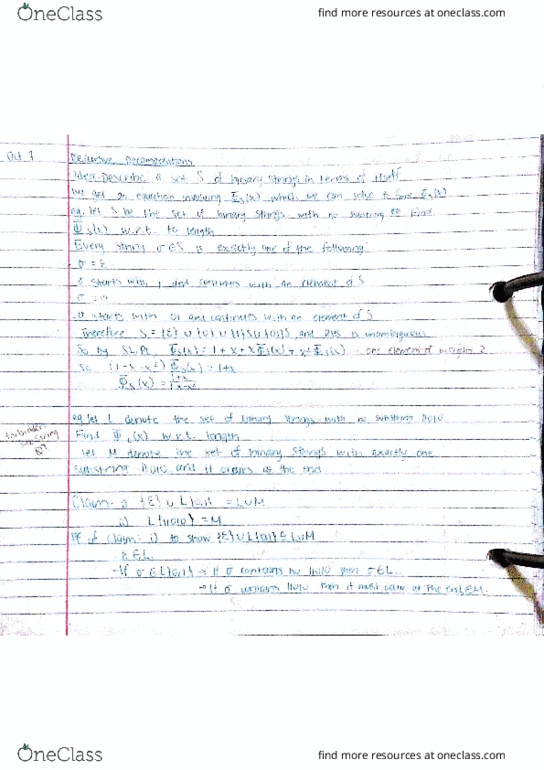 OneClass
find more resources at oneclass.com
Oct 7
Recursive Decompositions
Idea: Describe a set S of binary strings in terms of itself.
We get an equation involving Φ_S(x) which we can solve to find Φ_S(x)
eg. Let S be the set of binary strings with no substring 00. Find
Φ_S(x) w.r.t. to length
Every string σ∈S is exactly one of the following:
σ = ε
σ starts with 1 and continues with an element of S
σ = 0
σ starts with 01 and continues with an element of S
Therefore S = {ε} ∪ {0} ∪ {1}S ∪ {01}S, and this is unambiguous.
So by SL, PL, Φ_S(x) = 1 + x + xΦ_S(x) + x² Φ_S(x) one element of weight 2
So (1-x-x²) Φ_S(x) = 1+x
Φ_S(x) = 1+x / 1-x-x²
eg. Let L denote the set of binary strings with no substring 11010
forbidden substring
Find Φ_L(x) w.r.t. length
Let M denote the set of binary strings with exactly one
substring 11010 and it occurs at the end
Claim: i) {ε} ∪ L{0,1} = L∪M
ii) L{11010} = M
Pf of Claim: i) to show {ε}∪L{0,1} ⊆ L∪M
- ε∈L.
- If σ∈L{0,1} → If σ contains no 11010 then σ∈L.
→ If σ contains 11010 then it must occur at the end, ∈M.
OneClass
find more resources at oneclass.com